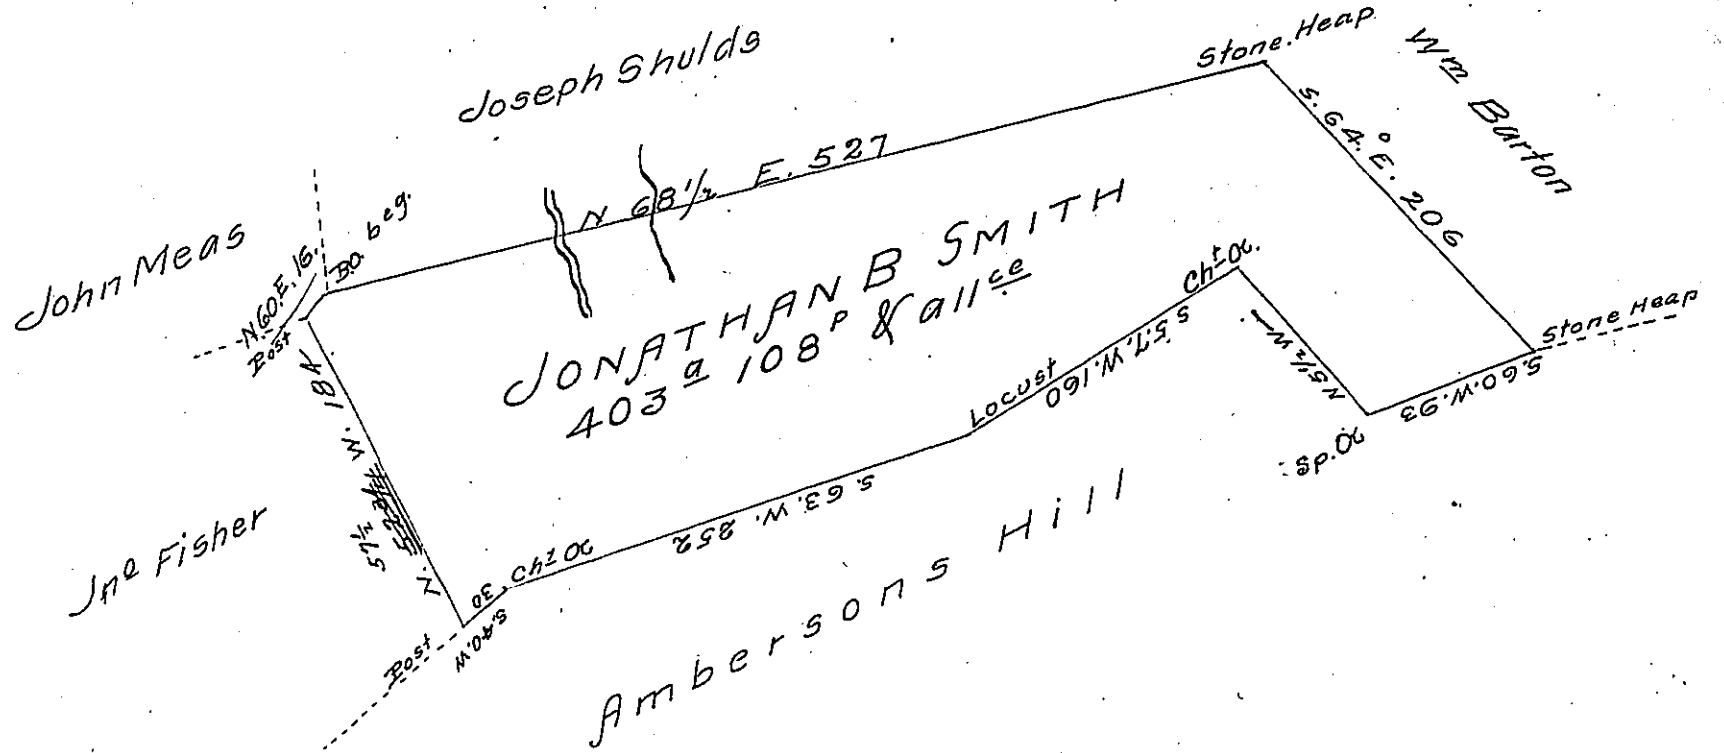 Joseph Shulds
Stone.Heap
Wm Burton
John Meas
N.60.E.16.
B.O. beg.
Post
N 68 1/2 E. 527
S.64.°E. 206
JONATHAN B SMITH
403a 108P & allce
Cht Oc.
N 51/2 W.
Stone Heap
S.60.W.93
Sp. Oc
S.57.W.160
Locust
S.63.W. 252
Cht Oc
S.40.W. 30
Post
N. 57 1/2 W. 184
Jno Fisher
Ambersons Hill